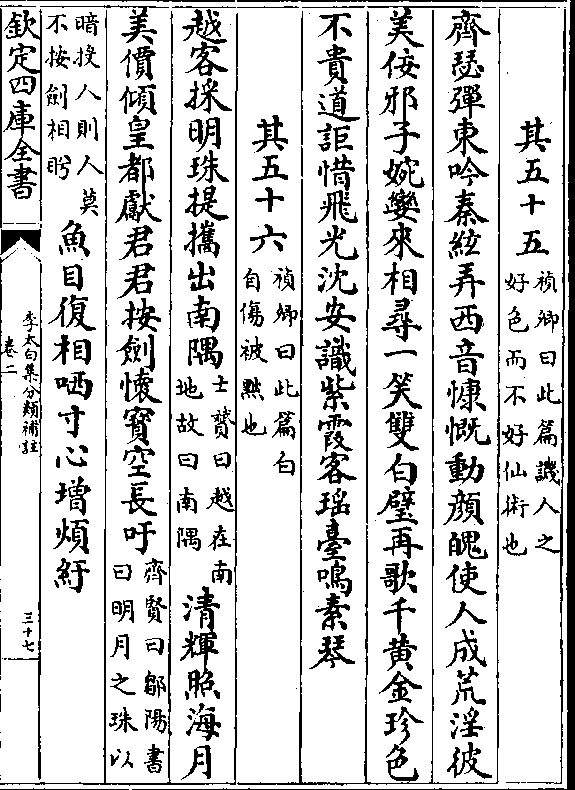 其五十五 禎卿曰此篇譏人之好色而不好仙術也
齊瑟彈東吟秦絃弄西音慷慨動顔魄使人成荒淫彼
美佞邪子婉孌來相尋一笑雙白璧再歌千黄金珍色
不貴道詎惜飛光沈安識紫霞客瑶臺鳴素琴
其五十六 禎卿曰此篇白自傷被黜也
越客採明珠提攜出南隅 士贇曰越在南地故曰南隅 清輝照海月
美價傾皇都獻君君按劍懷寶空長吁 齊賢曰鄒陽書曰明月之珠以
暗投人則人莫不按劍相盻 魚目復相哂寸心增煩紆
欽定四庫全書
李太白集分類補註
卷二
三十七